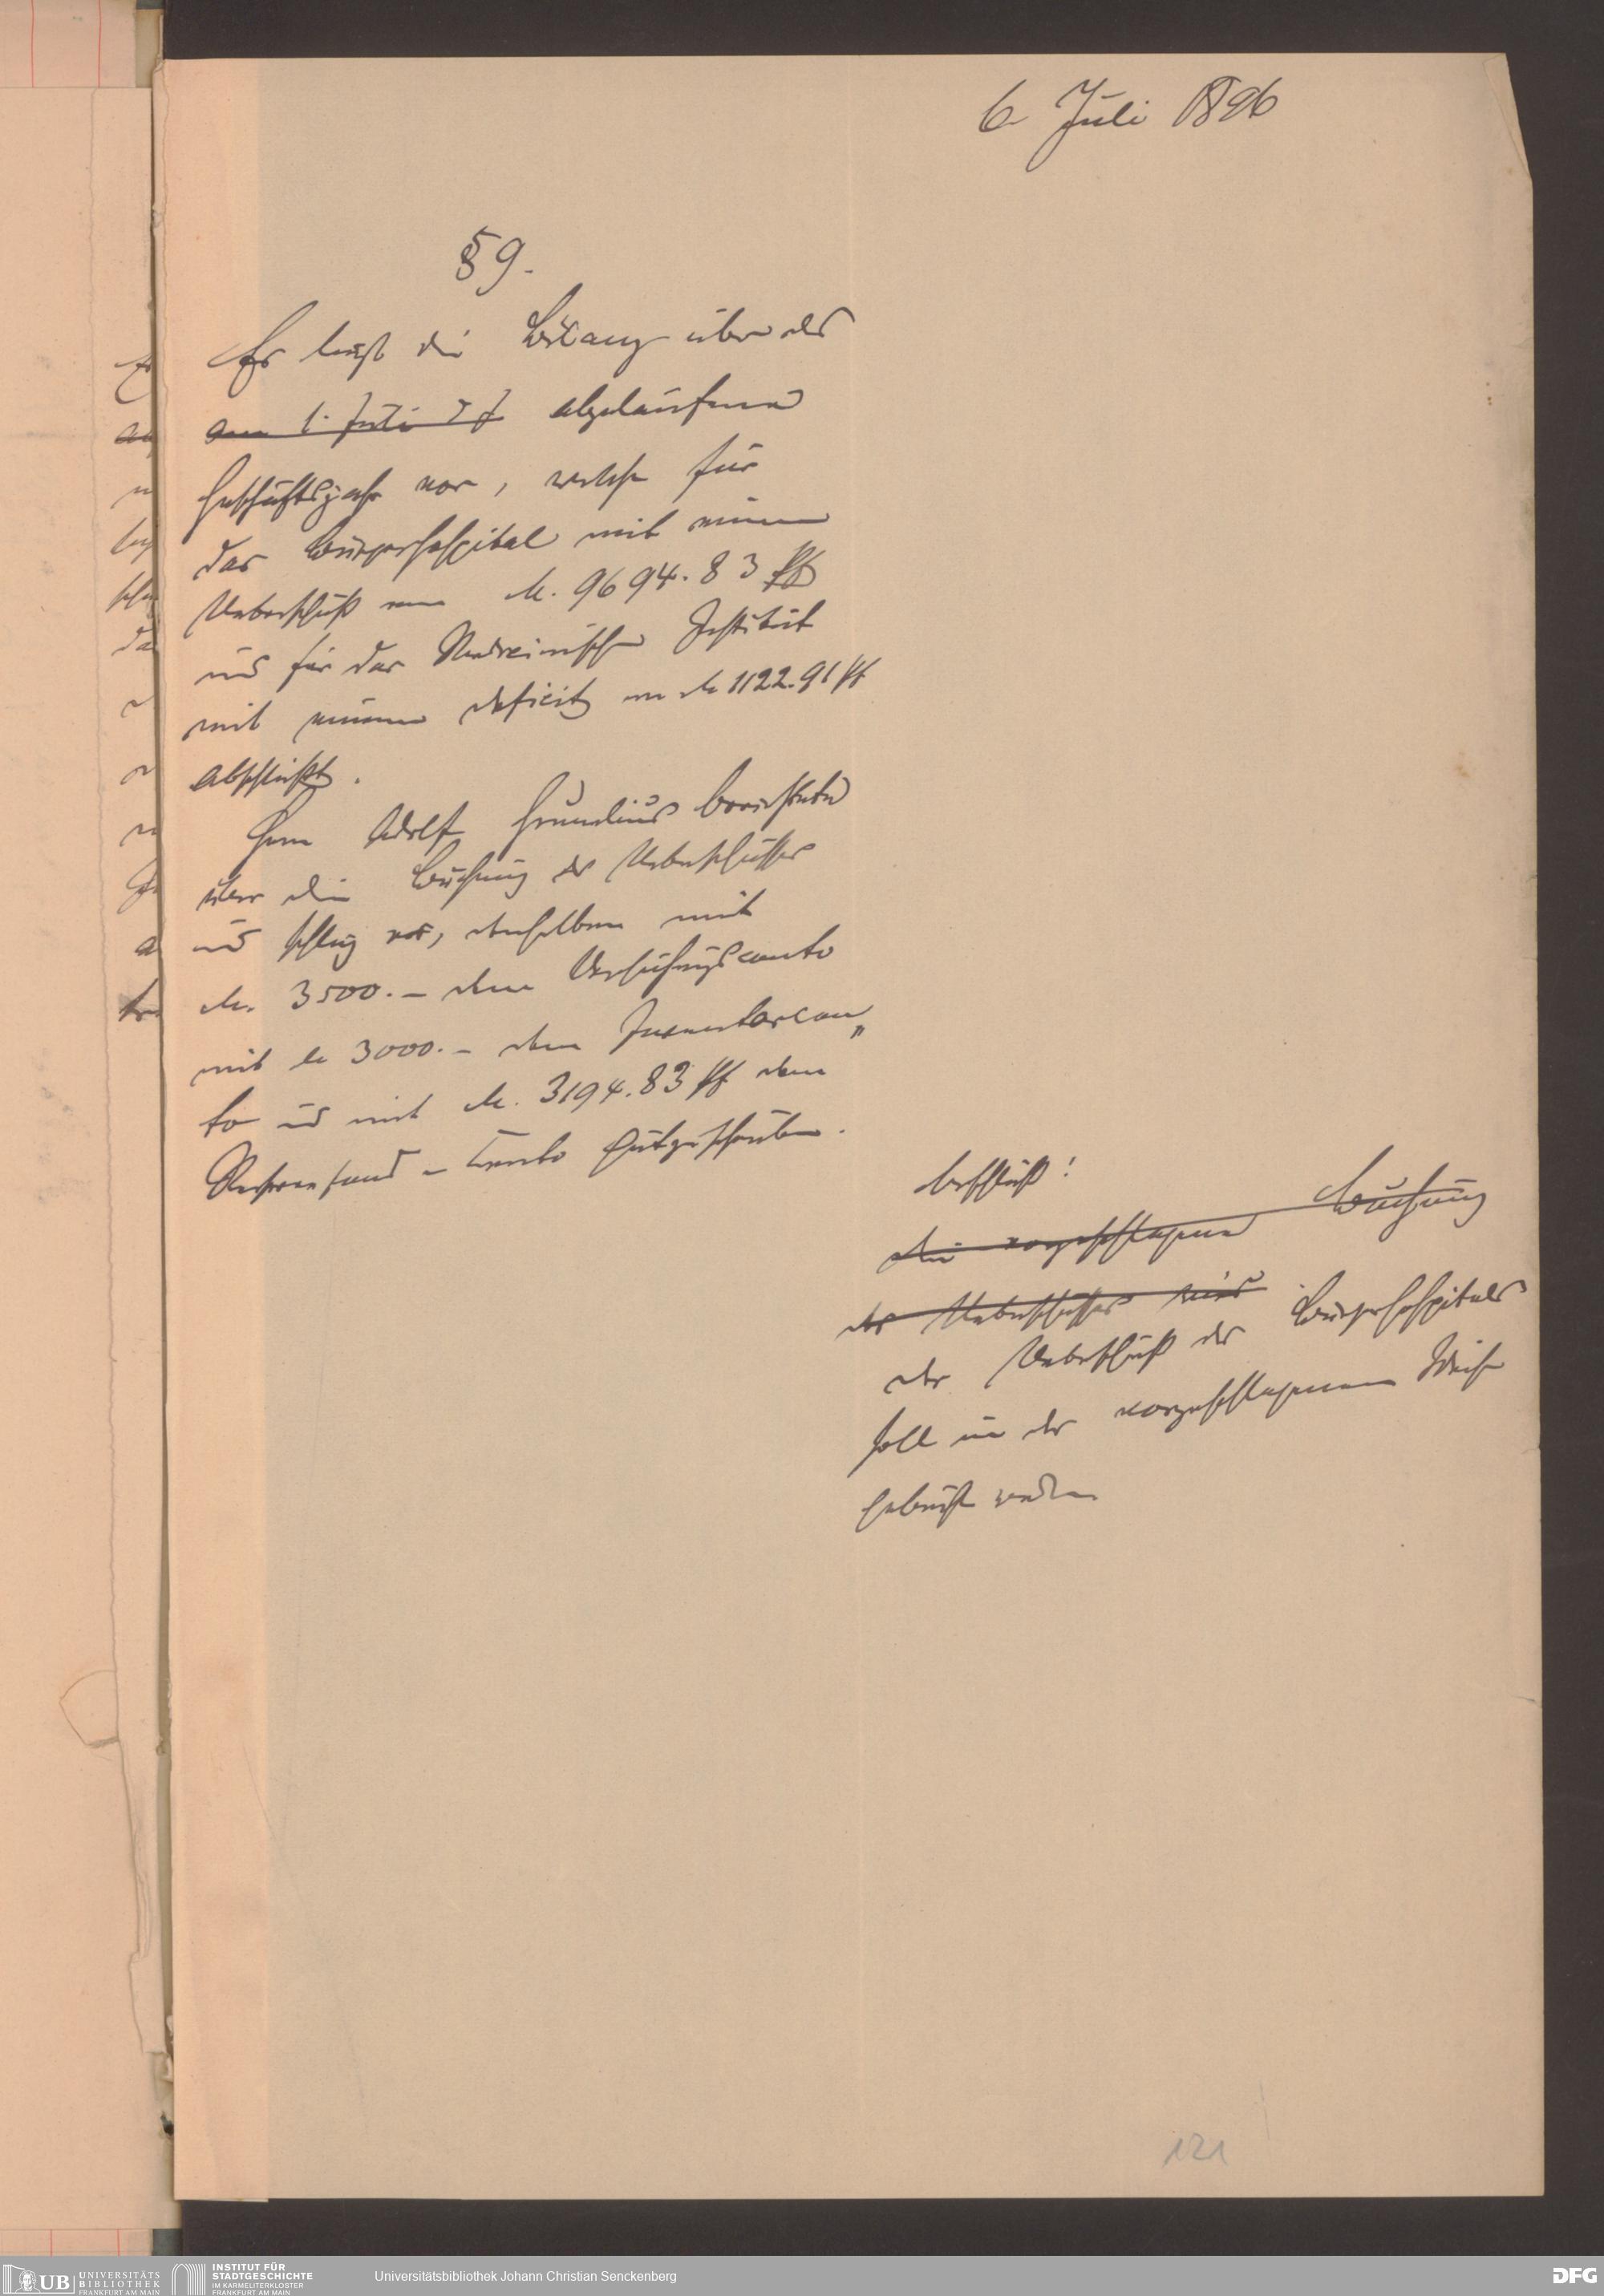 6. Juli 1896
§ 9.
Es liegt die Bilanz über das
am 1. Juli d J abgelaufene
Geschäftsjahr vor, welche für
das Bürgerhospital mit einem
Ueberschuß von M. 9694.83 Pf
und für das Medicinische Institut
mit einem deficit von M 1122.91 Pf
abschließt.
Herr Adolf berichtete
über die Buchung des Ueberschusses
und schlug vor, denselben mit
M. 3500.- dem conto
mit M 3000.- dem Inventarcon„
to und mit M. 3194.83 Pf dem
Reservefond - Conto gutzuschreiben.
Beschluß:
die vorgeschlagene Buchung
des Ueberschusses wird
der Ueberschuß des Bürgerhospitals
soll in der vorgeschlagenen Weise
gebucht werden
121
UB UNIVERSITÄTS
BIBLIOTHEK
FRANKFURT AM MAIN
INSTITUT FÜR
STADTGESCHICHTE
IM KARMELITERKLOSTER
FRANKFURT AM MAIN
Universitätsbibliothek Johann Christian Senckenberg
DFG